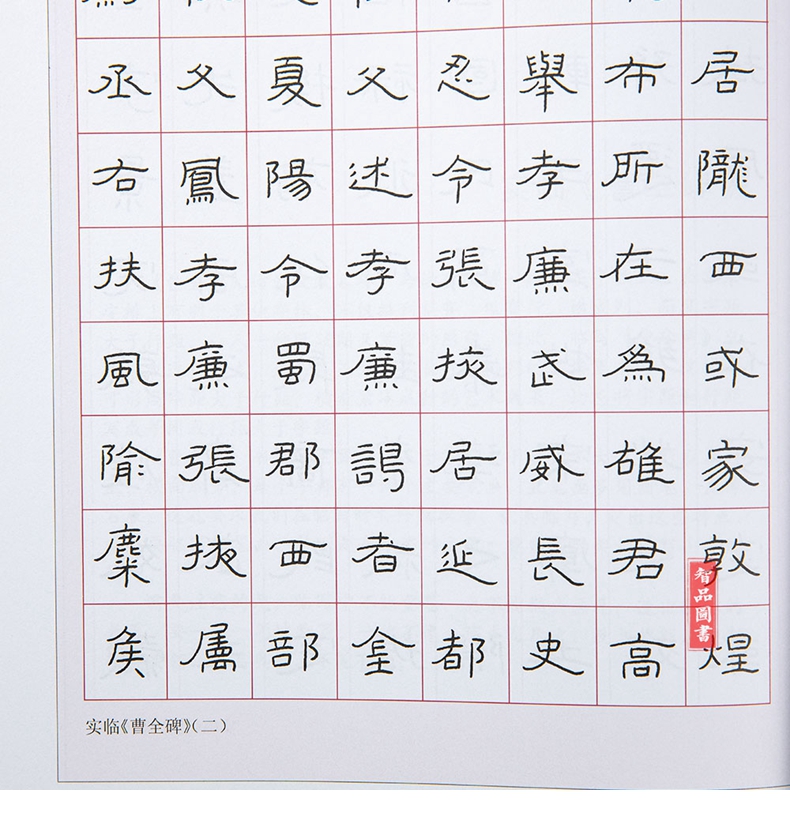 居隴西或家敦煌
布所在爲雄君高
舉孝廉武威長史
忍令張掖居延都
父述孝廉謁者金
夏陽令蜀郡西部
父鳳孝廉張掖属
丞右扶風隃麋侯
实临《曹全碑》（二）
智品圖書